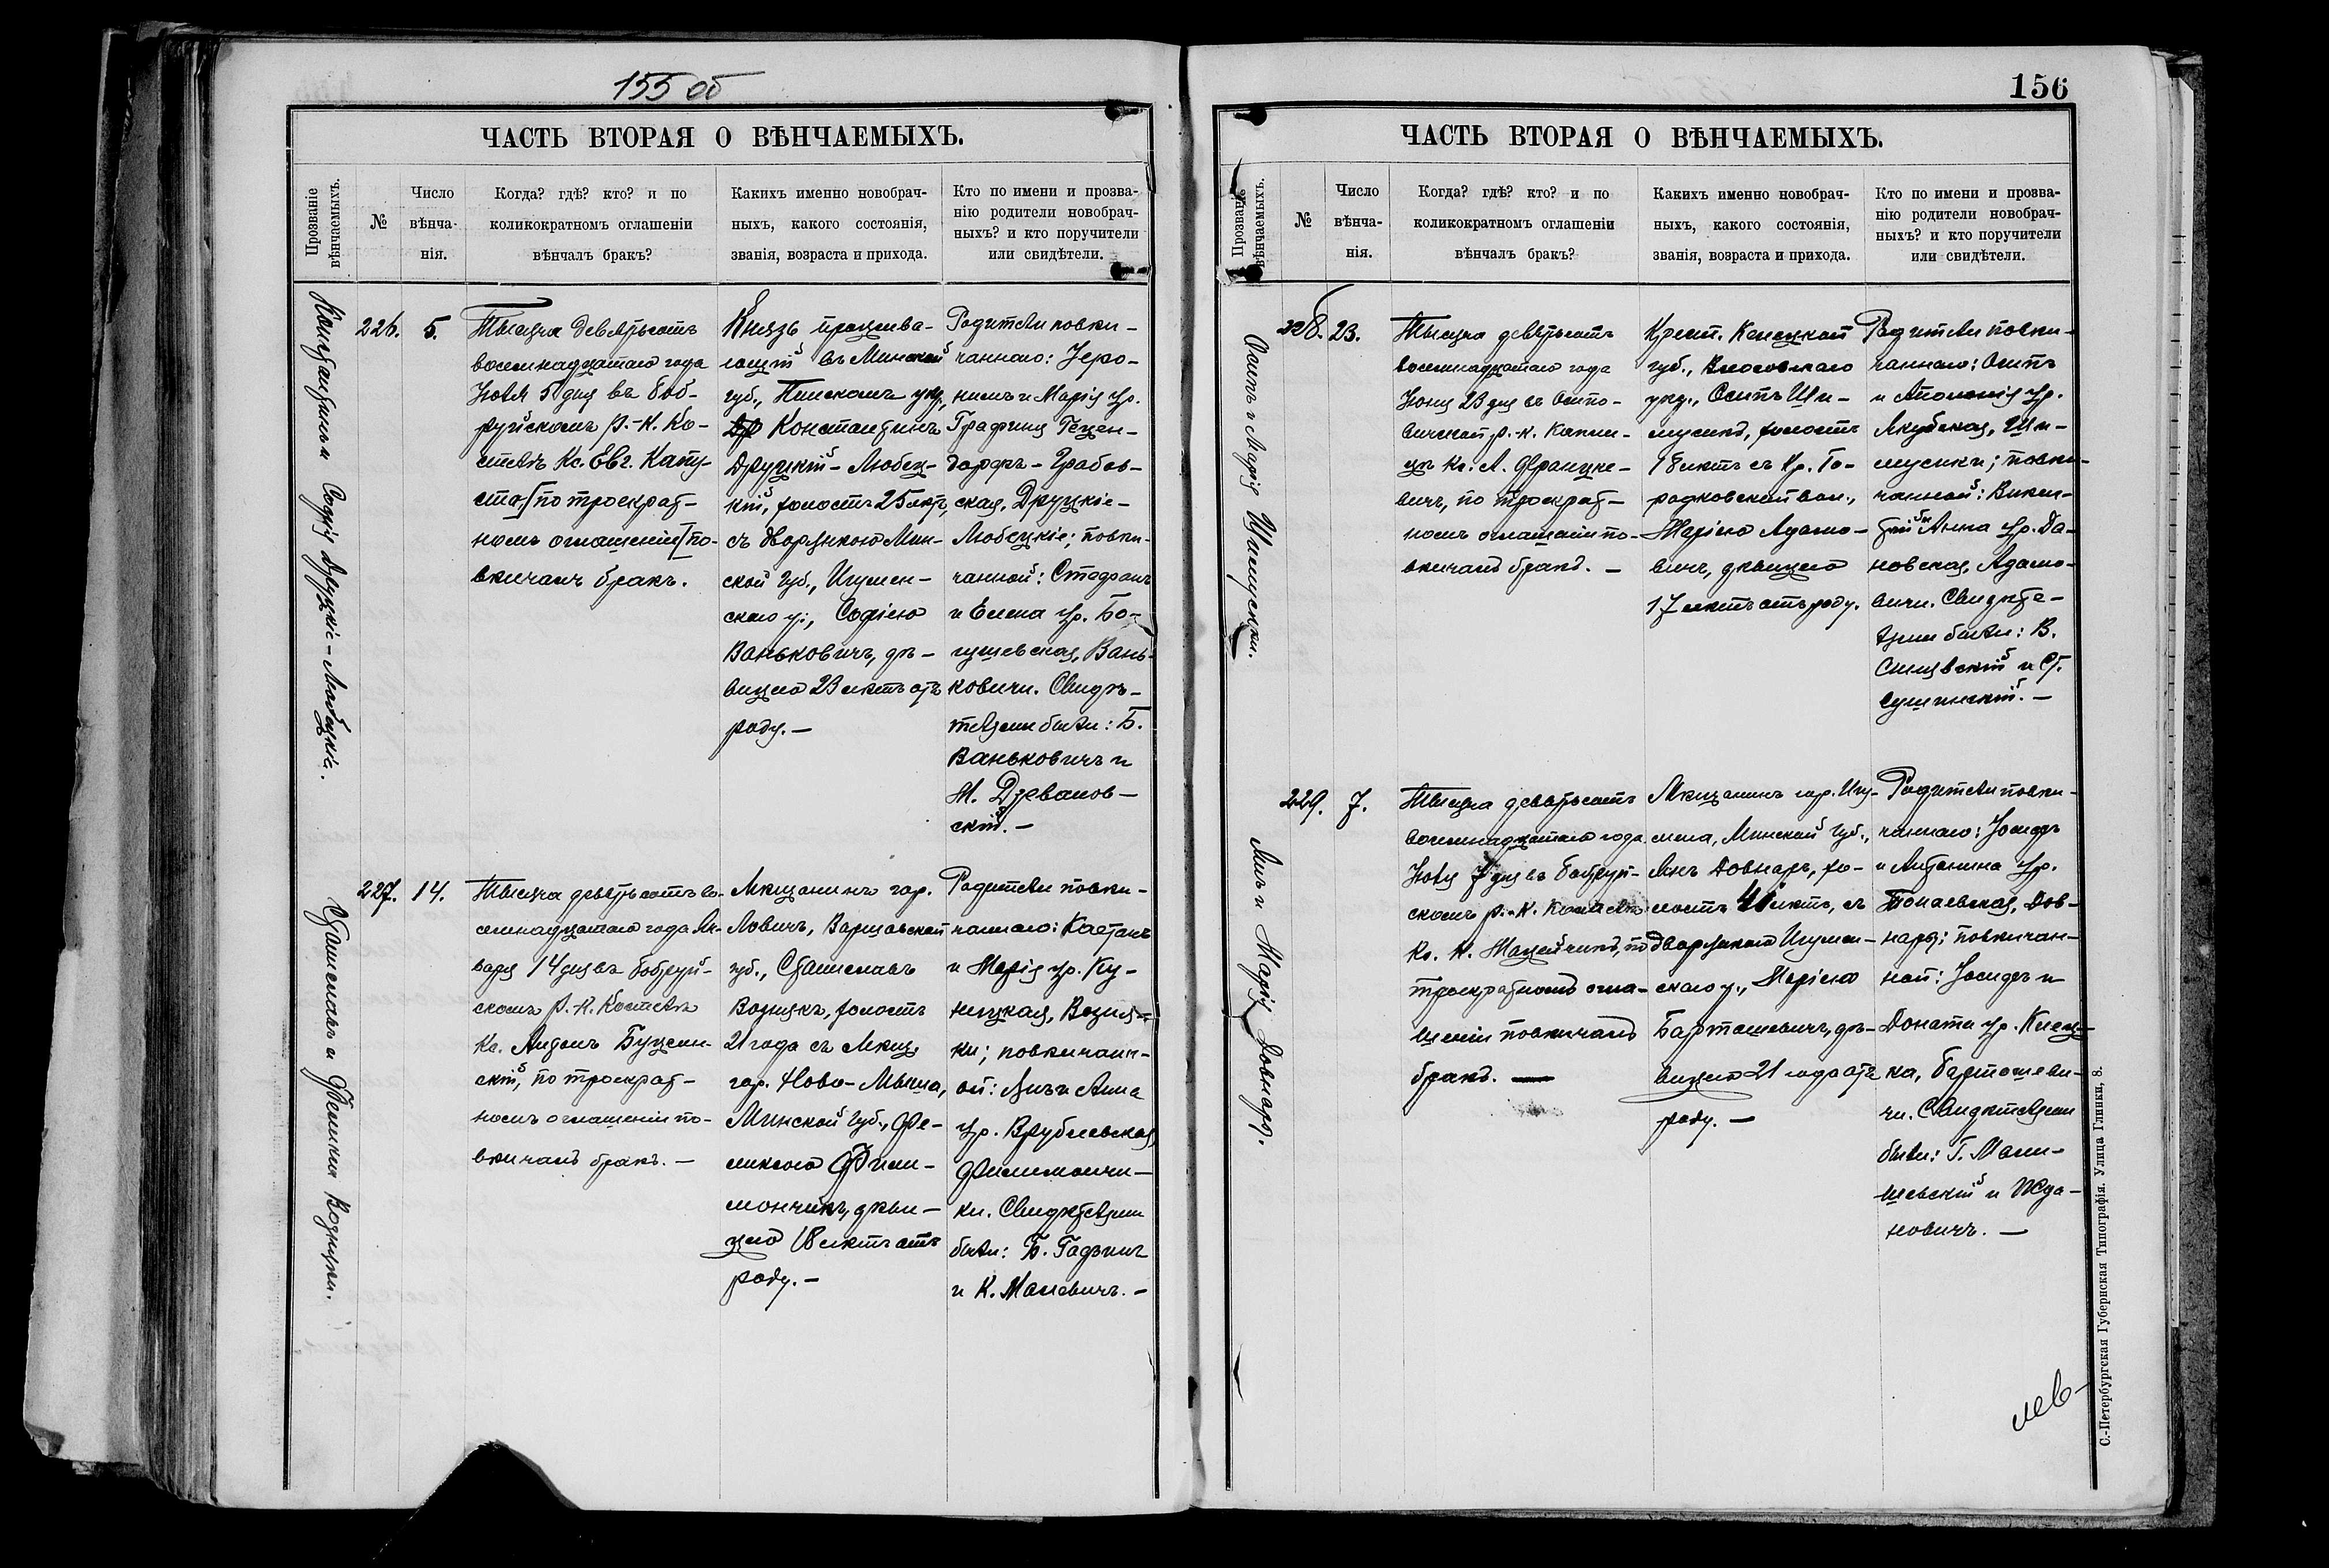 155 об
ЧАСТЬ ВТОРАЯ О ВѢНЧАЕМЫХЪ.
Прозваніе
вѣнчаемыхъ.
№
Число
вѣнча-
нія.
Когда? гдѣ? кто? и по
коликократномъ оглашеніи
вѣнчалъ бракъ?
Какихъ именно новобрач-
ныхъ, какого состоянія,
званія, возраста и прихода.
Кто по имени и прозва-
нію родители новобрач-
ныхъ? и кто поручители
или свидѣтели.
Константинъ и Софія Друцкіе-Любецкіе.
226.
5.
Тысяча девятьсотъ
восемнадцатаго года
Іюля 5 дня въ Боб-
руйскомъ р.-к. Ко-
стелѣ Кс. Евг. Капу-
ста, по троекрат-
номъ оглашеніи по-
вѣнчалъ бракъ.
Князь прожива-
ющій въ Минской
губ., Пинскомъ уѣз.,
Константинъ
Друцкій-Любец-
кій, холостъ 25 лѣтъ,
съ дворянкою Мин-
ской губ., Игумен-
скаго у., Софіею
Ваньковичъ, дѣ-
вицею 23 лѣтъ отъ
роду.—
Родители повѣн-
чаннаго: Іеро-
нимъ и Марія ур.
Графиня Гецен-
дорфъ-Грабов-
ская, Друцкіе-
Любецкіе; повѣн-
чанной: Стефанъ
и Елена ур. Бо-
гушевская, Вань-
ковичи. Свидѣ-
телями были: Б.
Ваньковичъ и
М. Држеванов-
скій.—
Станиславъ и Феликса Водницки.
227.
14.
Тысяча девятьсотъ во-
семнадцатаго года Ян-
варя 14 дня въ Бобруй-
скомъ р.-к. Костелѣ
Кс. Антонъ Буцен-
скій, по троекрат-
номъ оглашеніи по-
вѣнчалъ бракъ.—
Мѣщанинъ гор.
Ловичъ, Варшавской
губ., Станиславъ
холостъ
21 года съ мѣщ.
гор. Ново-Мыша,
Минской губ., Фе-
ликсою Фили-
мончикъ, дѣви-
цею 18 лѣтъ отъ
роду.—
Родители повѣн-
чаннаго: Каетанъ
и Марія ур. Ку-
ницкая,
ки; повѣнчанн-
ой: Янъ и Анна
ур. Врублевская,
Филимончи-
ки. Свидѣтелями
были: Б. Гадзичъ
и К. Маневичъ.—
156
ЧАСТЬ ВТОРАЯ О ВѢНЧАЕМЫХЪ.
Прозваніе
вѣнчаемыхъ.
№
Число
вѣнча-
нія.
Когда? гдѣ? кто? и по
коликократномъ оглашеніи
вѣнчалъ бракъ?
Какихъ именно новобрач-
ныхъ, какого состоянія,
званія, возраста и прихода.
Кто по имени и прозва-
нію родители новобрач-
ныхъ? и кто поручители
или свидѣтели.
Осипъ и Марія
228.
23.
Тысяча девятьсотъ
восемнадцатаго года
Іюня 23 дня въ Осипо-
вичской р.-к. Капли-
цѣ Кс. А. Францке-
вичъ, по троекрат-
номъ оглашеніи по-
вѣнчалъ бракъ.—
Крест. Кѣлецкой
губ., Влосовскаго
уѣзд., Осипъ Ши-
холостъ
18 лѣтъ съ кр. Го-
родковской вол.,
Маріею Адамо-
вичъ, дѣвицею
17 лѣтъ отъ роду.
Родители повѣн-
чаннаго: Осипъ
и Аполонія ур.
Якубская, Ши-
повѣн-
чанной: Викен-
тій и Анна ур. Да-
новская, Адамо-
вичи. Свидѣте-
лями были: В.
и Ст.
Сушинскій.—
Янъ и Марія Довнары.
229.
7.
Тысяча девятьсотъ
восемнадцатаго года
Іюля 7 дня въ Бобруй-
скомъ р.-к. Костелѣ
Кс. К. Мацейчикъ, по
троекратномъ огла-
шеніи повѣнчалъ
бракъ.—
Мѣщанинъ гор. Игу-
мена, Минской губ.,
Янъ Довнаръ, хо-
лостъ 41 лѣтъ, съ
дворянкою Игумен-
скаго у., Маріею
Барташевичъ, дѣ-
вицею 21 года отъ
роду.—
Родители повѣн-
чаннаго: Іосифъ
и Антонина ур.
Довѣ-
нары; повѣнчан-
ной: Іосифъ и
Доната ур.
ка, Барташеви-
чи. Свидѣтелями
были: Г. Мали-
шевскій и Жда-
новичъ.—
С.-Петербургская Губернская Типографія. Улица Глинки, 8.